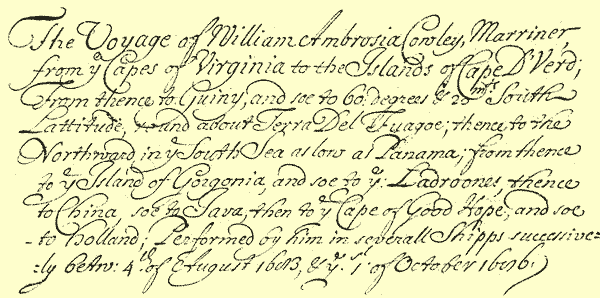 The Voyage of William Ambrosia Cowley, Marriner,
from yᵉ Capes of Virginia to the Islands of Cape D'Verd;
From thence to Guiny, and soe to 60: degrees & 20ᵐᵗˢ South
Lattitude, round about Terra Del Fuagoe; thence to the
Northward in yᵉ South Sea as low as Panama; from thence
to yᵉ Island of Gorgonia, and soe to yᵉ Ladroones, thence
to China, soe to Java, then to yᵉ Cape of Good Hope, and soe
to Holland; Performed by him in severall Shipps successive-
-ly betw: 4ᵗʰ of August 1683, & yᵉ 1ˢᵗ of October 1686: